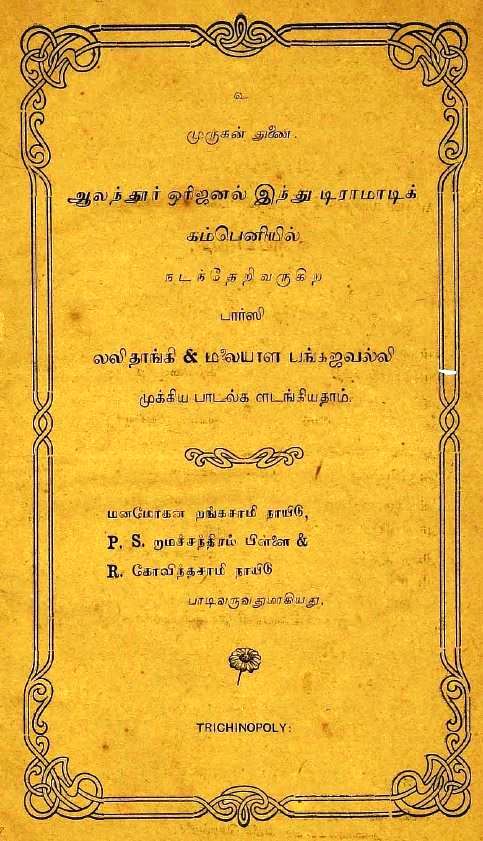 உ
முருகன் துணை.
ஆலந்தூர் ஒரிஜனல் இந்து டிராமாடிக்
கம்பெனியில்
நடந்தேறிவருகிற
பார்ஸி
லலிதாங்கி & மலையாள பங்கஜவல்லி
முக்கிய பாடல்க ளடங்கியதாம்.
மனமோகன றங்கசாமி நாயிடு,
P. S. றாமச்சந்திரம் பிள்ளை &
R. கோவிந்தசாமி நாயிடு
பாடிவருவதுமாகியது.
TRICHINOPOLY: